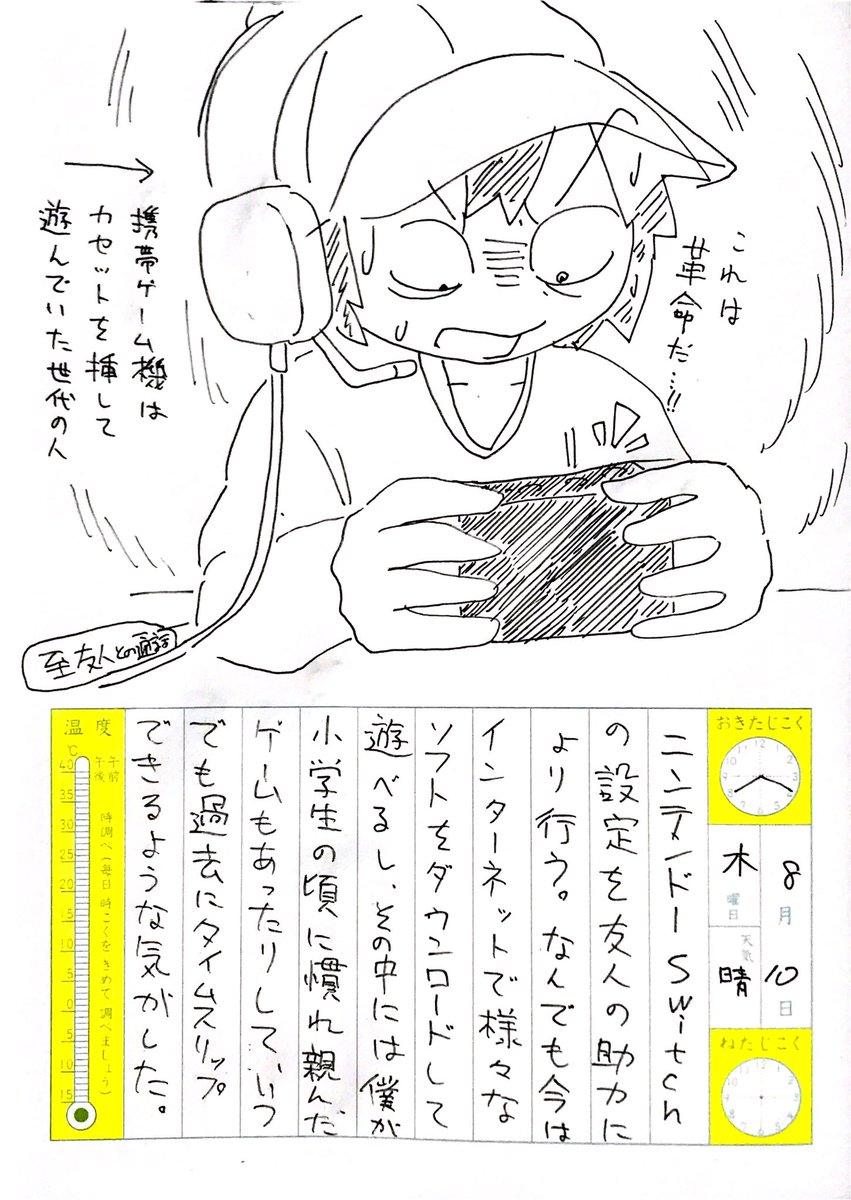 これは
革命だ…!!
携帯ゲーム機は
カセットを挿して
遊んでいた世代の人
至友人との通話
おきたじこく
12 1 2 3 4 5 6 7 8 9 10 11
8月10日
木曜日
天気 晴
ねたじこく
12 1 2 3 4 5 6 7 8 9 10 11
ニンテンドーSwitch
の設定を友人の助力に
より行う。なんでも今は
インターネットで様々な
ソフトをダウンロードして
遊べるし、その中には僕が
小学生の頃に慣れ親んだ
ゲームもあったりしていつ
でも過去にタイムスリップ
できるような気がした。
温度
午前
午後
時調べ(毎日 時こくを きめて 調べましょう)
℃
40
35
30
25
20
15
10
5
0
5
10
15